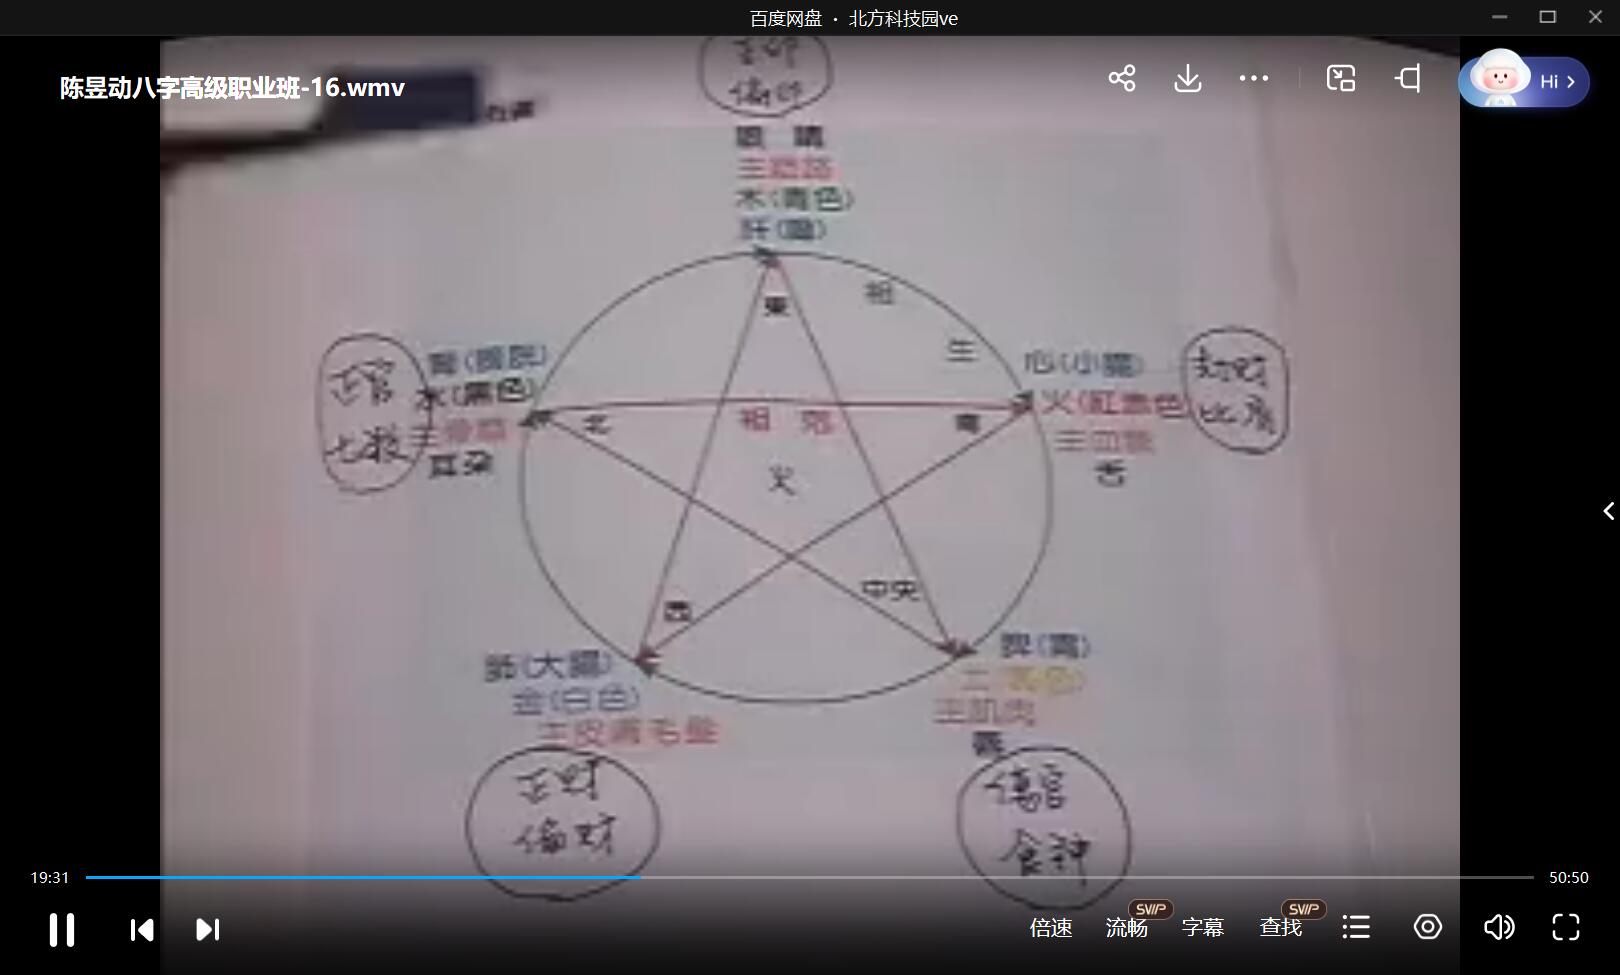 百度网盘 · 北方科技园ve
陈昱动八字高级职业班-16.wmv
Hi
正印
偏印
眼 睛
木(青色)
肝(膽)
東
相
生
正官
七殺
腎(膀胱)
水(黑色)
主骨
耳朵
北
相 剋
南
火
心(小腸)
火(紅赤色)
主血
舌
劫财
比肩
西
中央
肺(大腸)
金(白色)
主皮膚毛髮
脾(胃)
土(黃色)
主肌肉
唇
正财
偏财
傷官
食神
19:31
50:50
倍速
流畅
SVIP
字幕
查找
SVIP